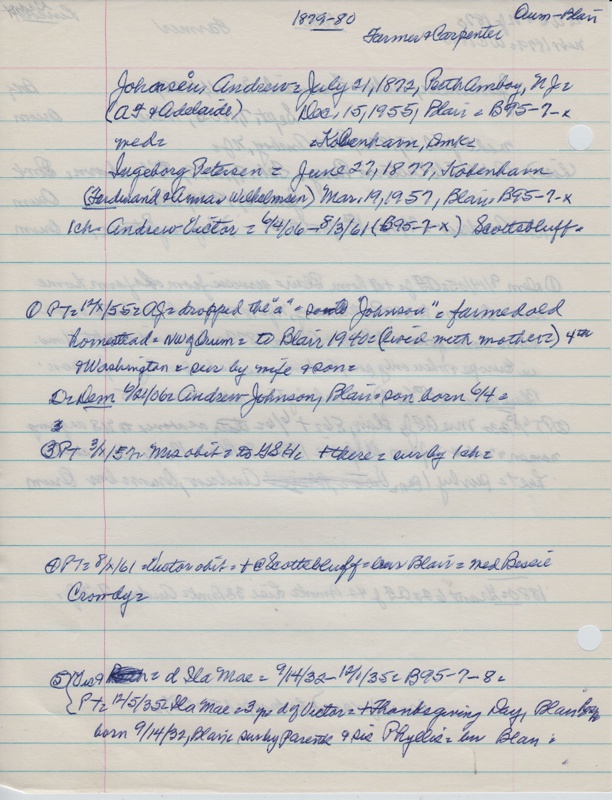 1879-80
Orum-Blair
Farmer & Carpenter
Johansen, Andrew = July 21, 1872, Perth Amboy, NJ =
(A.F. & Adelaide) Dec. 15, 1955, Blair = B95-7-x
med = = Kobenhavn, Dmk =
Ingeborg Petersen = June 27, 1877, Kobenhavn
(Ferdinand & Anna Wilhelmsen) Mar. 19, 1957, Blair, B95-7-x
1ch = Andrew Victor = 6/4/06 - 8/3/61 (B95-7-x) Scottsbluff =
① PT = 12/x/55 = dropped the "a" = "Johnson" = farmed old
homestead = NW of Orum = to Blair 1940 = (lived with mother =) 4th
& Washington = sur by wife & son =
Dem 6/21/06 = Andrew Johnson, Blair = son born 6/4 =
③ PT 3/x/57 = Mrs obit = to + there = sur by 1ch =
④ PT = 8/x/61 = Victor obit = + @ Scottsbluff = bur Blair = med Bessie
Crowdy =
⑤ = d Ila Mae = 9/14/32 - 12/1/35 = B95-7-8 =
PT = 12/5/35 = Ila Mae = 3 yr d of Victor = + Thanksgiving Day, Blair
born 9/14/32, Blair = sur by Parents & sis Phyllis = bur Blair =